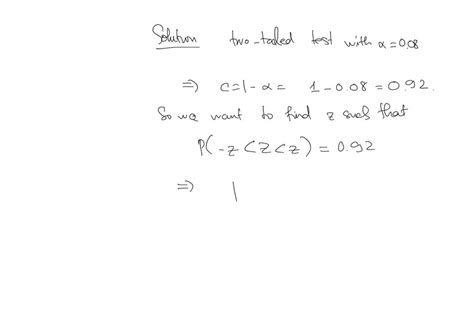 Solution two-tailed test with α=0.08
⇒ c=1-α= 1-0.08=0.92.
So we want to find z such that
P(-z<Z<z)=0.92
⇒ |